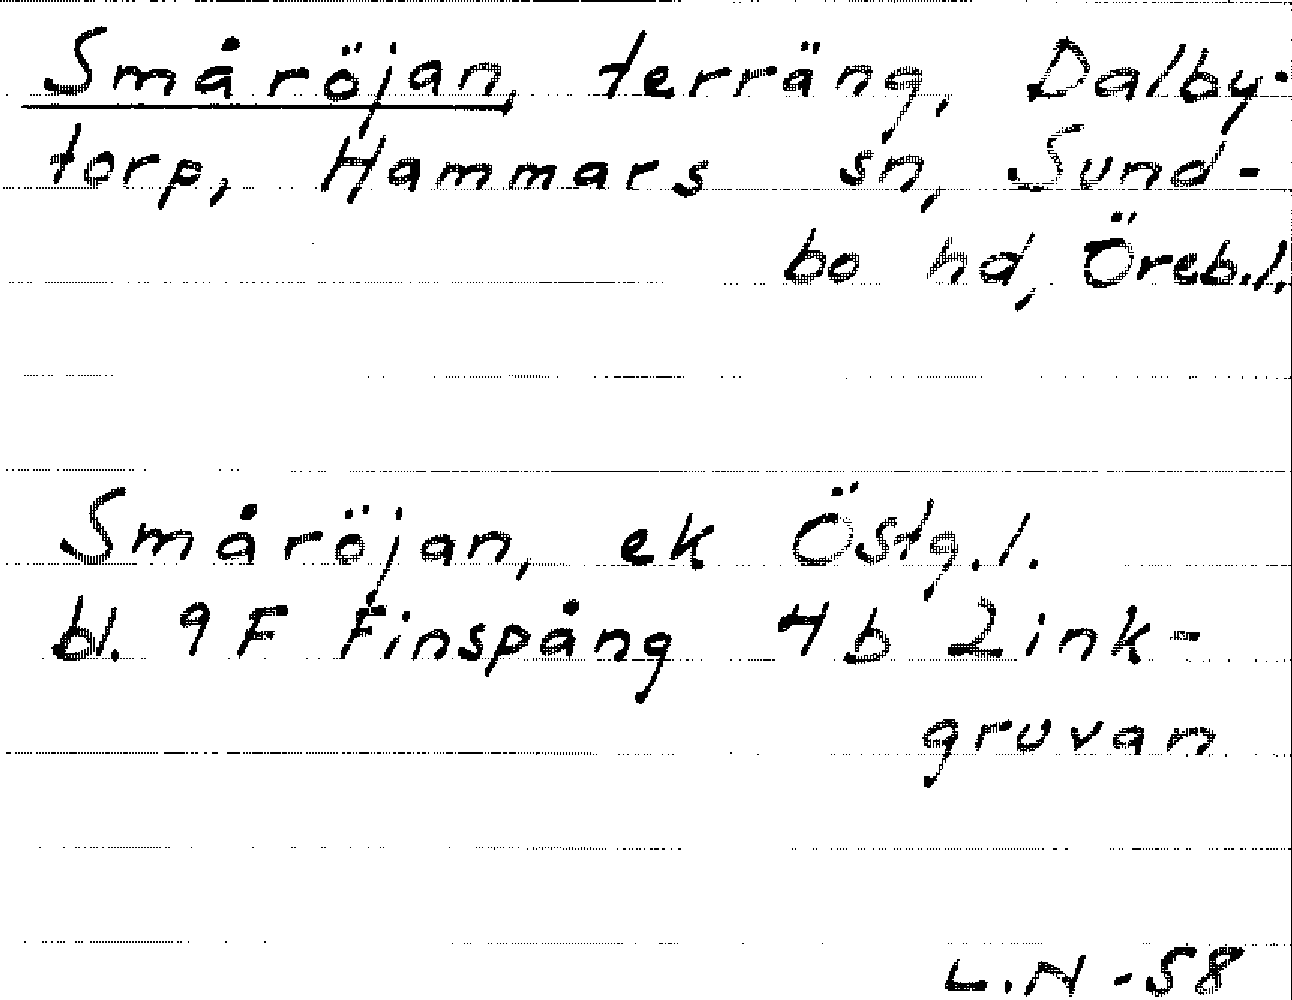 Småröjan, terräng, Dalby-
torp, Hammars sn, Sund-
bo hd, Öreb.l.
Småröjan, ek Östg.l.
bl. 9F Finspång 4b Zink-
gruvan
L.N -58